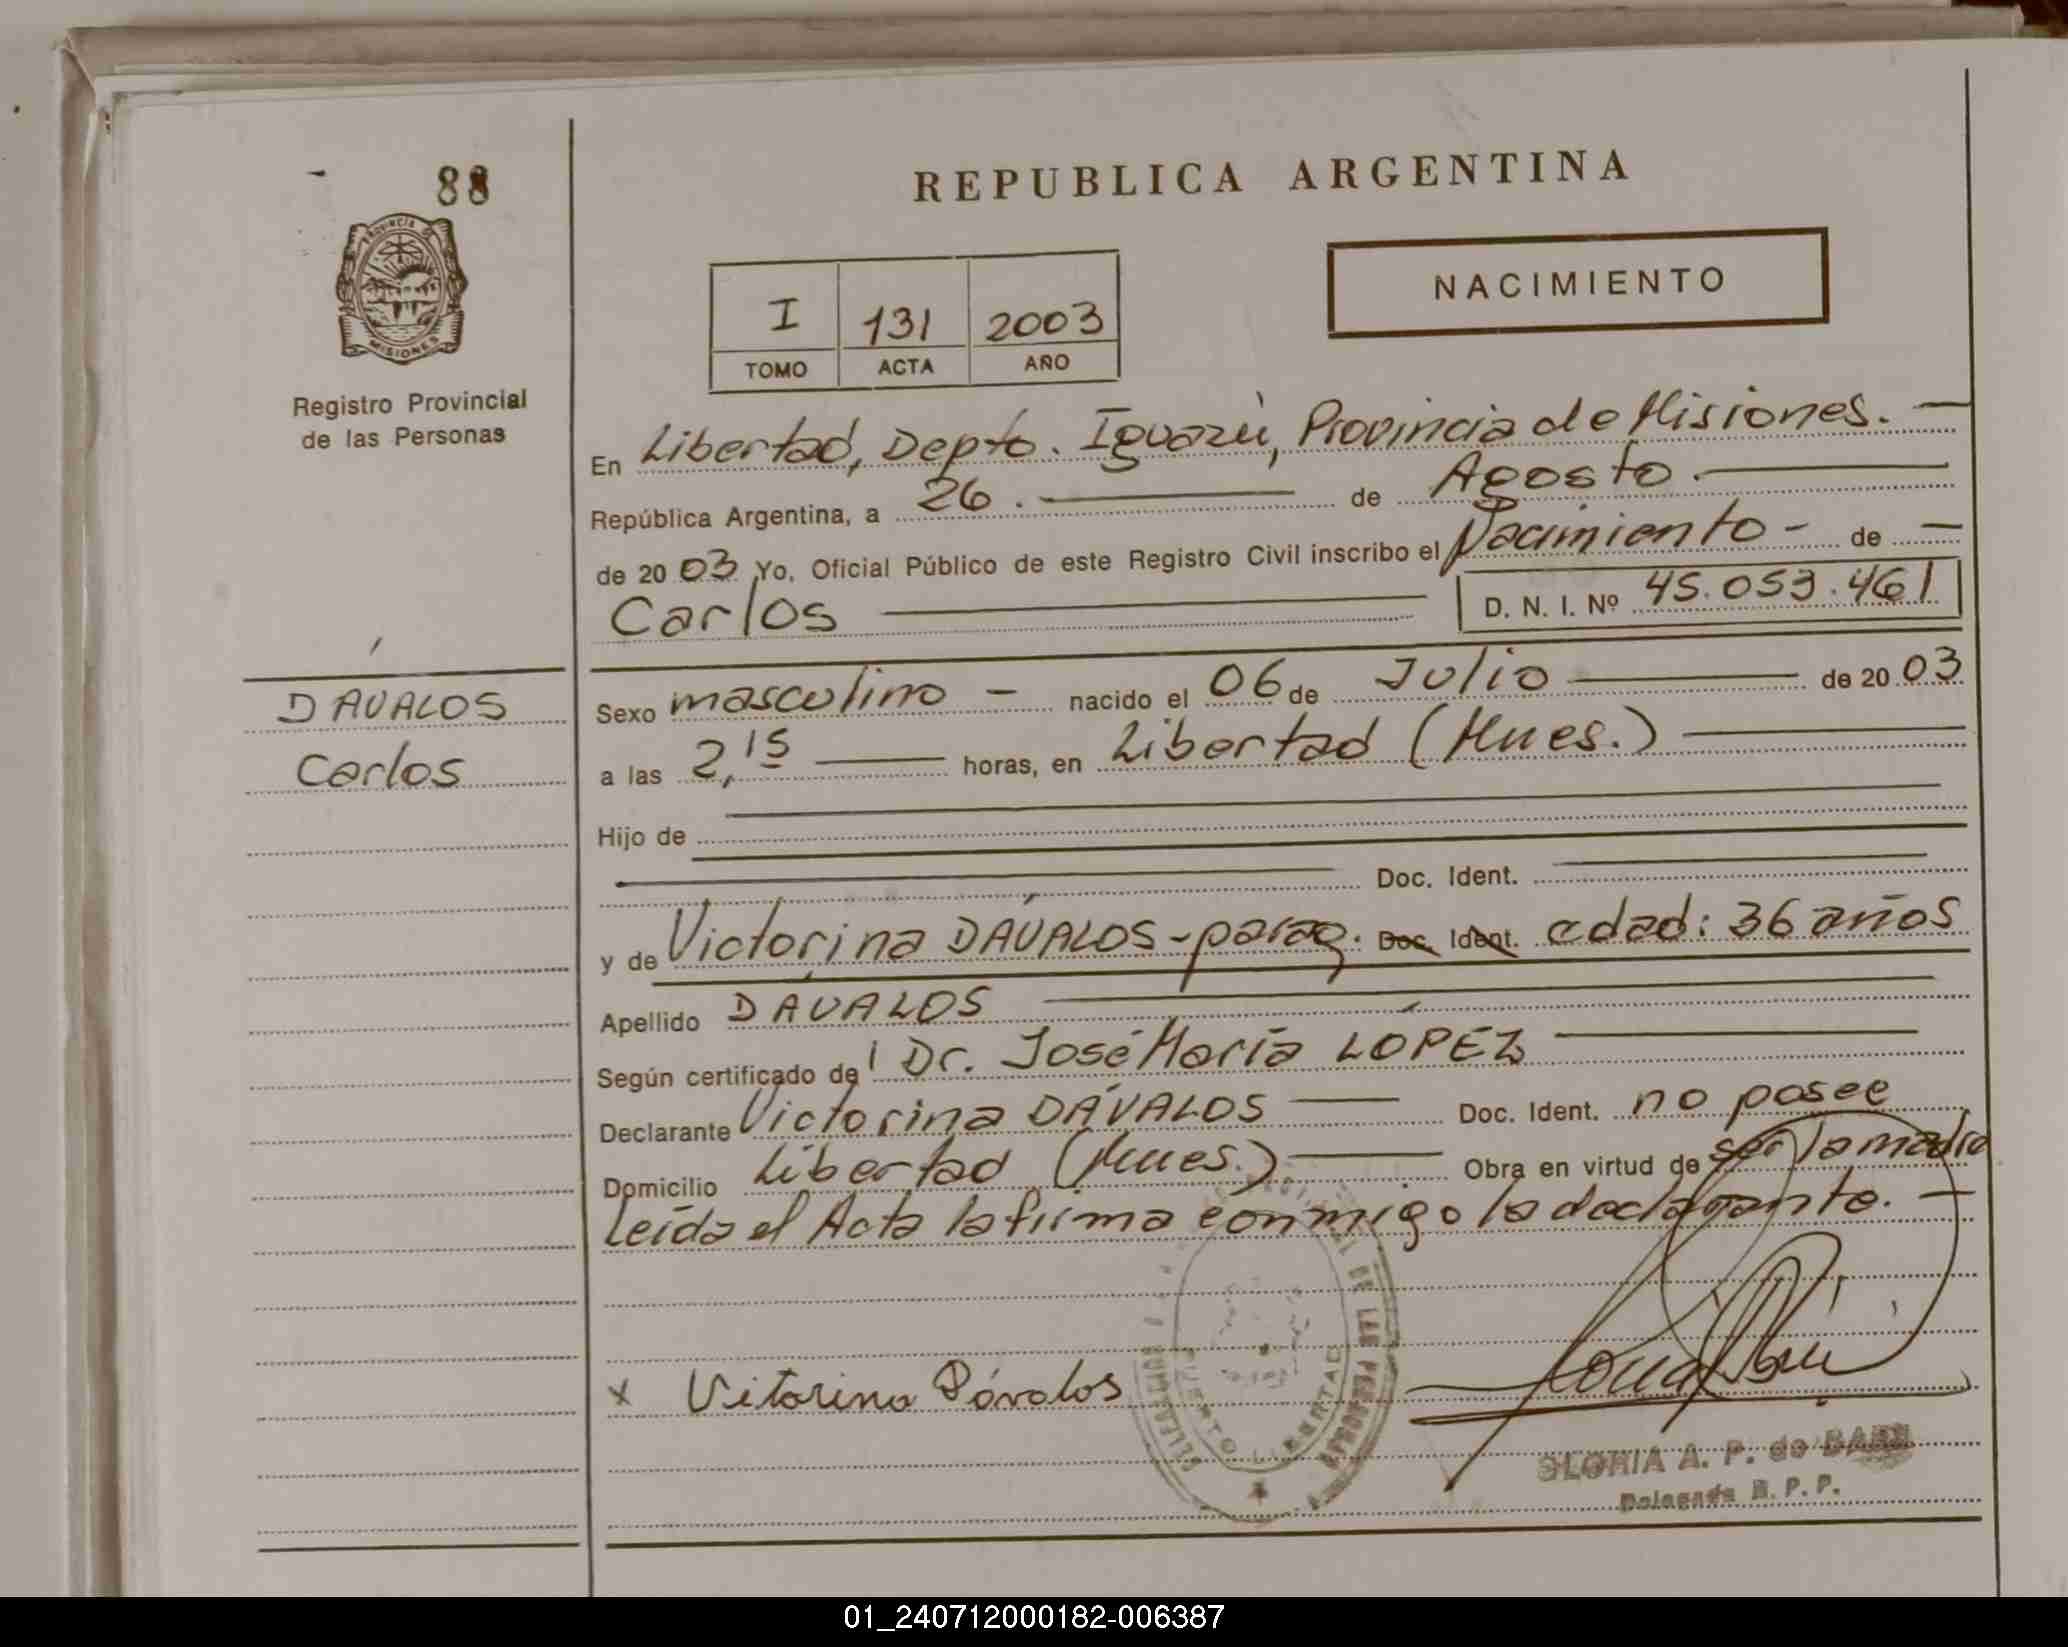 88
PROVINCIA DE
MISIONES
Registro Provincial
de las Personas
REPUBLICA ARGENTINA
NACIMIENTO
I 131 2003
TOMO ACTA AÑO
En Libertad, Depto. Iguazú, Provincia de Misiones. —
República Argentina, a 26. — de Agosto. —
de 2003 Yo, Oficial Público de este Registro Civil inscribo el Nacimiento - de —
Carlos — D. N. I. Nº 45.053.461
DÁVALOS
Carlos
Sexo masculino — nacido el 06 de Julio — de 2003
a las 2,15 — horas, en Libertad (Mnes.) —
Hijo de —
— Doc. Ident. —
y de Victorina DÁVALOS - parag. Doc. Ident. edad: 36 años
Apellido DÁVALOS —
Según certificado del Dr. José María LÓPEZ —
Declarante Victorina DÁVALOS — Doc. Ident. no posee
Domicilio Libertad (Mnes.) — Obra en virtud de ser la madre
leída el Acta la firma conmigo la declarante. —
x Vitorina Dávalos
PUERTO LIBERTAD
GLORIA A. P. de
Delegada R. P. P.
01_240712000182-006387